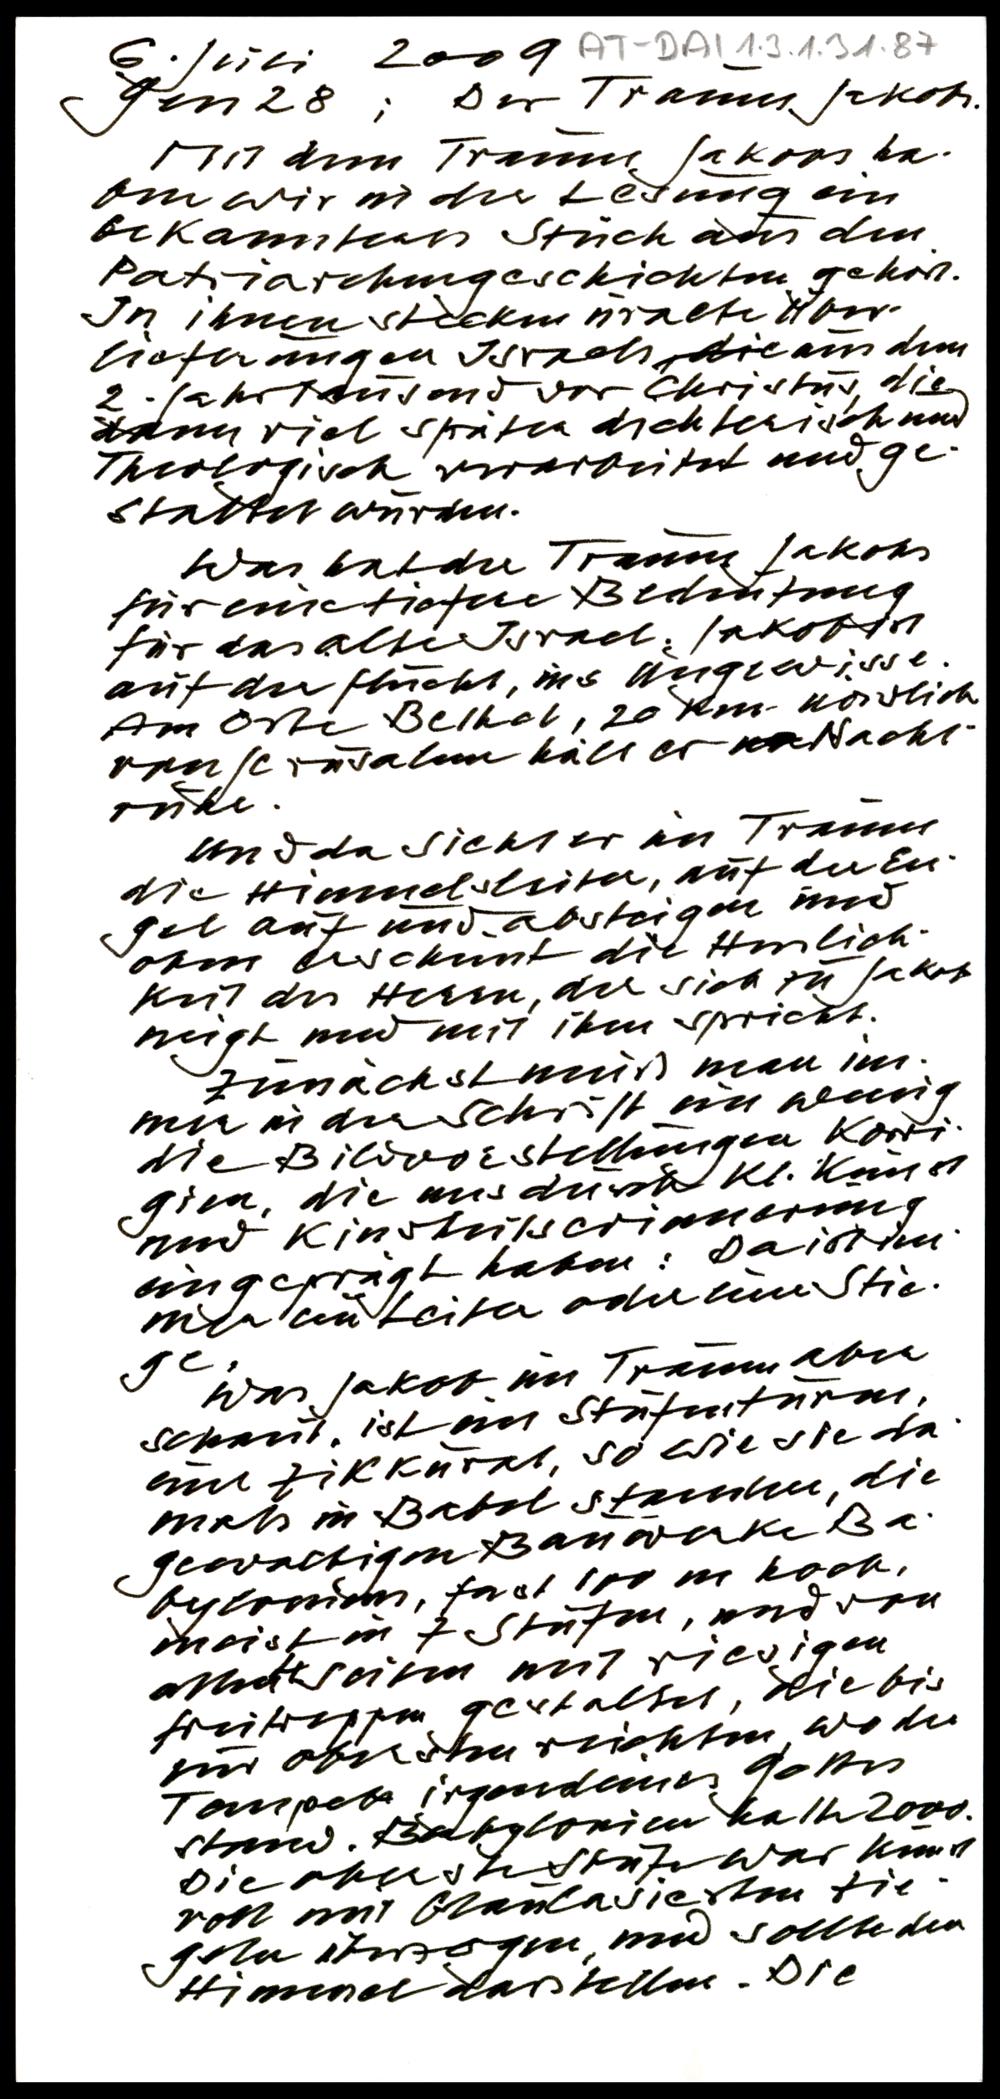 6. Juli 2009 AT-DAI 1.3.1.31.87
Gen 28 ; Der Traum Jakobs.
Mit dem Traume Jakobs ha-
ben wir in der Lesung ein
bekanntes Stück aus den
Patriarchengeschichten gehört.
In ihnen stecken uralte Über-
lieferungen Israels, die aus dem
2. Jahrtausend vor Christus, die
dann viel später dichterisch und
Theologisch verarbeitet und ge-
staltet wurden.
Was hat der Traum Jakobs
für eine tiefere Bedeutung
für das alte Israel. Jakob ist
auf der Flucht, ins Ungewisse.
Am Orte Bethel, 20 km nördlich
von Jerusalem hält er Nacht-
ruhe.
Und da sieht er im Traum
die Himmelsleiter, auf der En-
gel auf und absteigen und
oben erscheint die Herrlich-
keit des Herrn, der sich zu Jakob
neigt und mit ihm spricht.
Zunächst muß man im-
mer in der Schrift ein wenig
die Bildvorstellungen korri-
gieren, die uns durch Kunst
und Kindheitserinnerung
eingeprägt haben: Da ist im-
mer eine Leiter oder eine Stie-
ge.
Was Jakob im Traum aber
schaut, ist ein Stufenturm,
eine Zikkurat, so wie sie da-
mals in Babel standen, die
gewaltigen Bauwerke Ba-
byloniens, fast 100 m hoch,
meist in 7 Stufen, und von
allen Seiten mit riesigen
Freitreppen gestaltet, die bis
zur obersten reichten, wo der
Tempel irgendeines Gottes
stand. Babylonien hatte 2000.
Die oberste Stufe war kunst
voll mit blaulasierten Zie-
geln überzogen, und sollte den
Himmel darstellen. Die